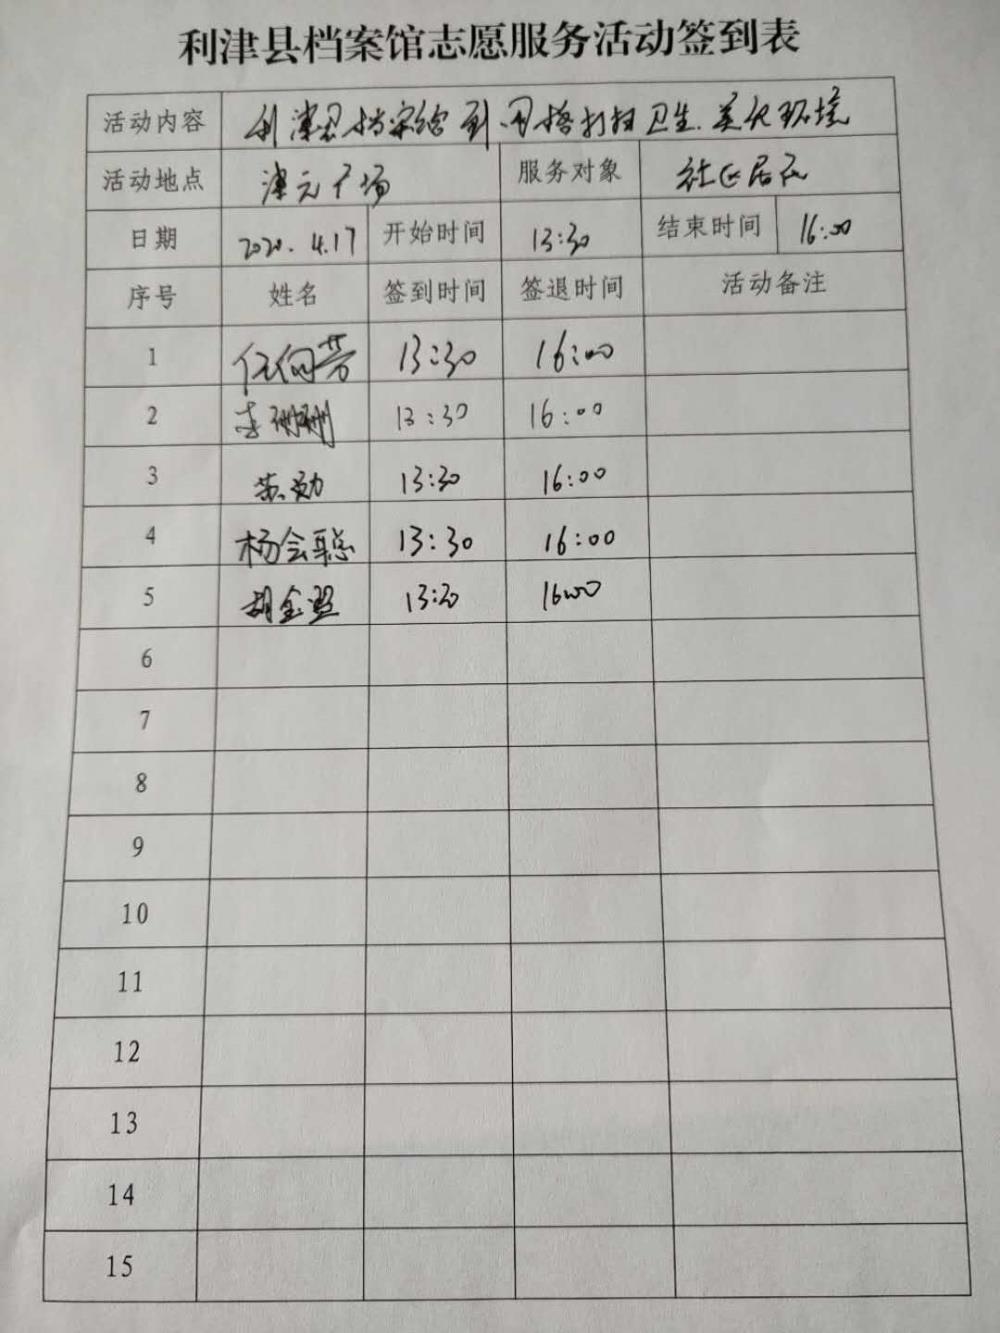 利津县档案馆志愿服务活动签到表
活动内容 利津县档案馆到 打扫卫生.美化环境
活动地点 津元广场 服务对象 社区居民
日期 2020.4.17 开始时间 13:30 结束时间 16:00
序号 姓名 签到时间 签退时间 活动备注
1 任向芳 13:30 16:00
2 李珊珊 13:30 16:00
3 13:30 16:00
4 杨会聪 13:30 16:00
5 13:30 16:00
6
7
8
9
10
11
12
13
14
15